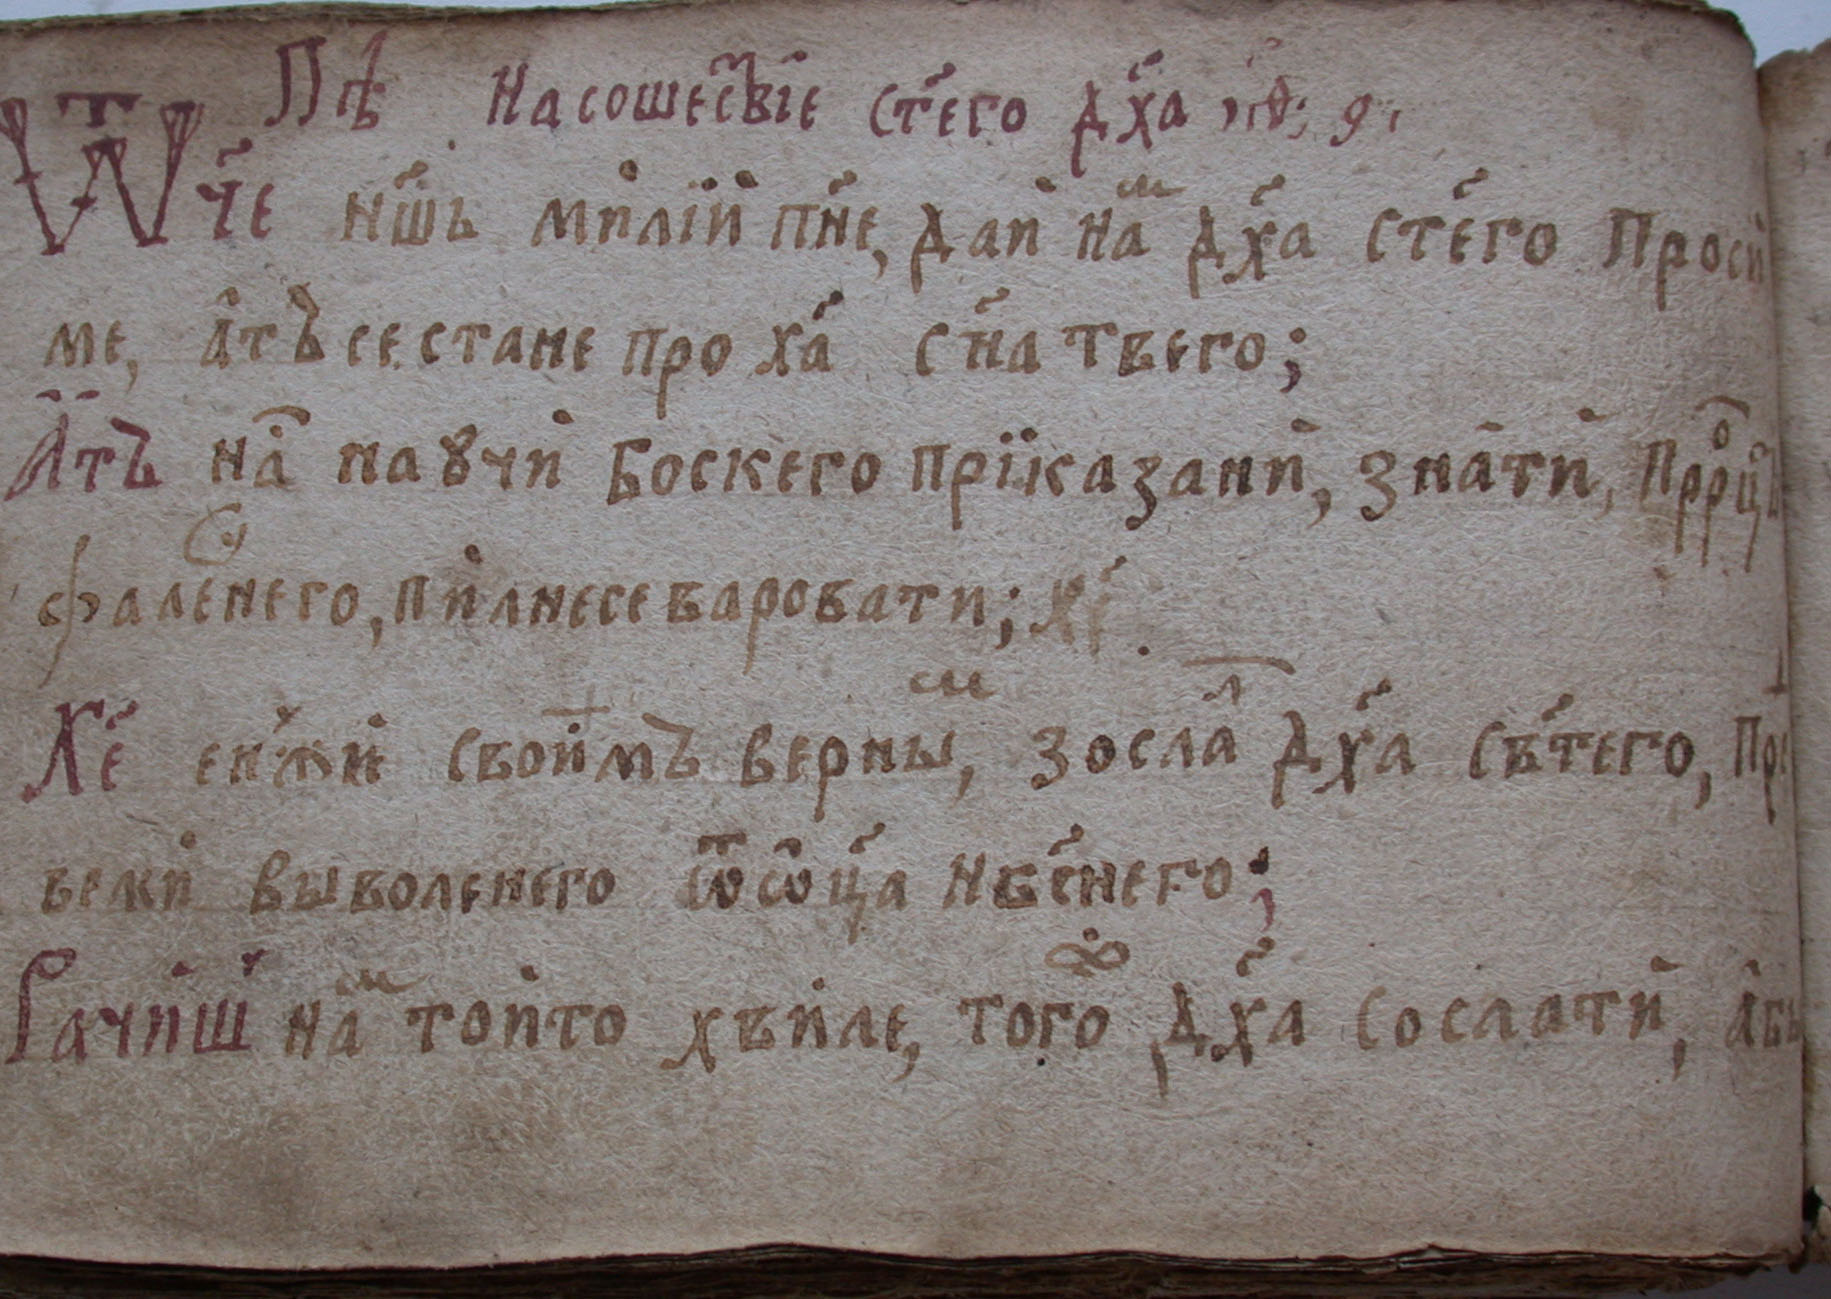 Пѣ На сошествіе ст҃его дх҃а
Ѿч҃е нш҃ъ милїй пн҃е, дай наⷨ дх҃а ст҃его Проси
ме, атъ се стане про ха҃ сн҃а твего;
Атъ на҃ научи Боскего приказани, знати, прⷪ҇рц
фаленего, пилне се варовати; хе҃
Хе҃ своимъ верныⷨ, зослаⷧ дх҃а свѣтего, Пре
веми выволенего ѿ ѡц҃а нб҃снего;
Рачишъ наⷨ той то хвиле, того дх҃а сослати, абы